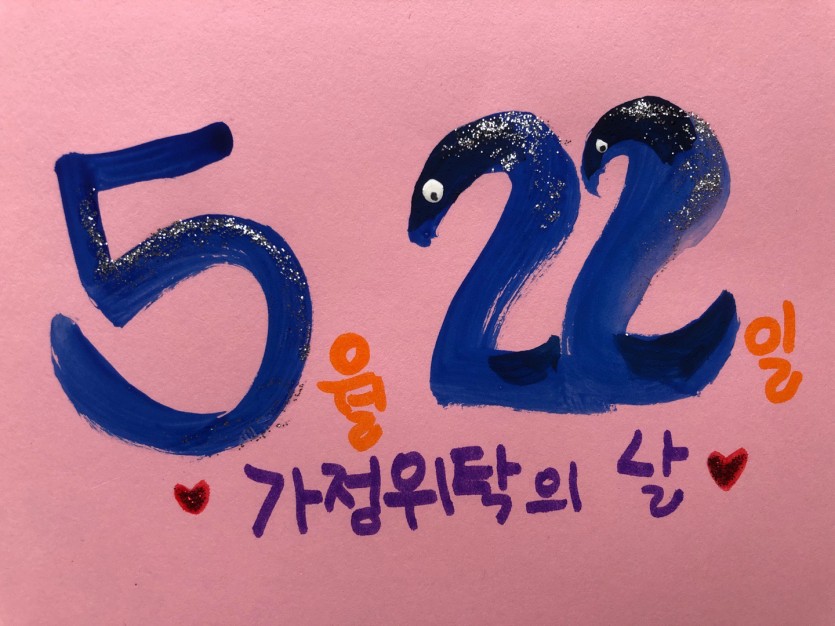 5월 22일
가정위탁의 날